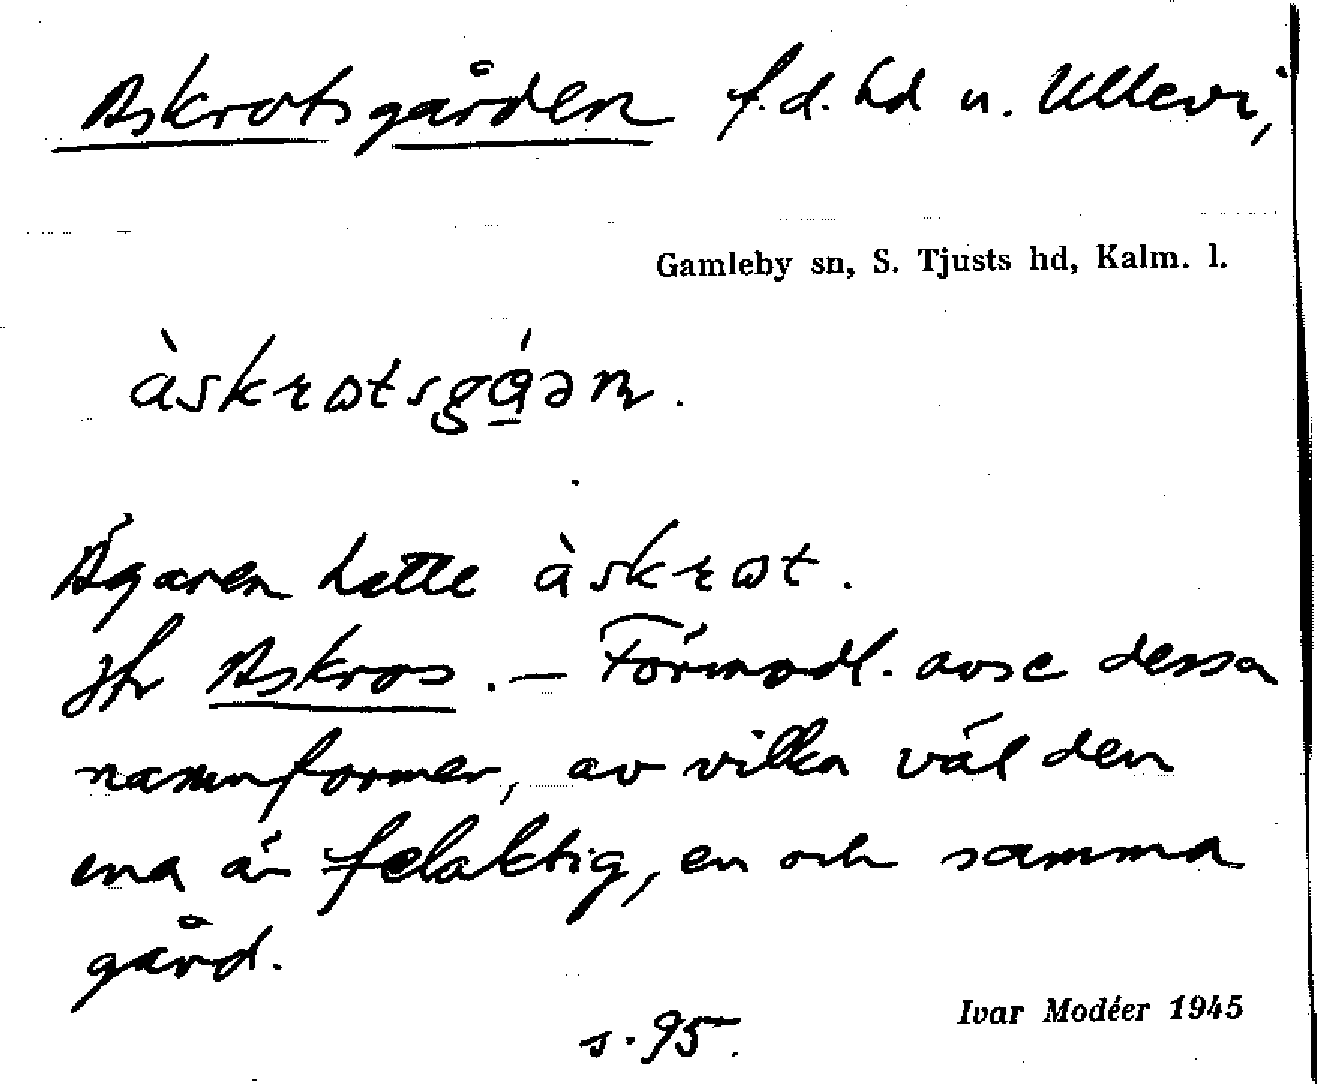 Askrotsgården f.d. hd u. Ullevi,
Gamleby sn, S. Tjusts hd, Kalm. l.
àskrωtsgá̱ən.
Ägaren hette àskrωt.
Jfr Askros. – Förmodl. avse dessa
namnformer, av vilka väl den
ena är felaktig, en och samma
gård.
s. 95.
Ivar Modéer 1945